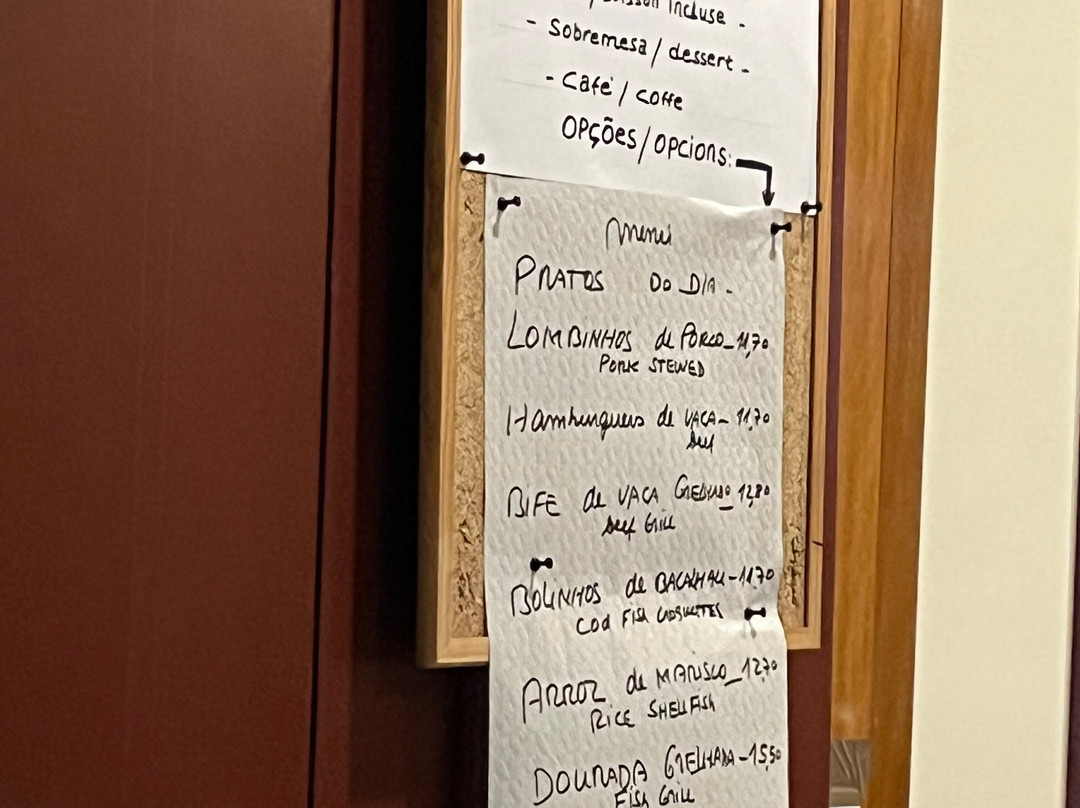 Boisson incluse -
- Sobremesa / dessert -
- Café / coffe
OPÇÕES / OPCIONS:
Menu
PRATOS DO DIA -
LOMBINHOS de PORCO - 11,70
PORK STEWED
Hamburgueres de VACA - 11,70
Beef
BIFE de VACA GRELHADO 12,80
Beef GRILL
BOLINHOS de BACALHAU - 11,70
COD FISH CROSQUETTES
ARROZ de MARISCO - 12,70
RICE SHELLFISH
DOURADA GRELHADA - 15,50
FISH GRILL